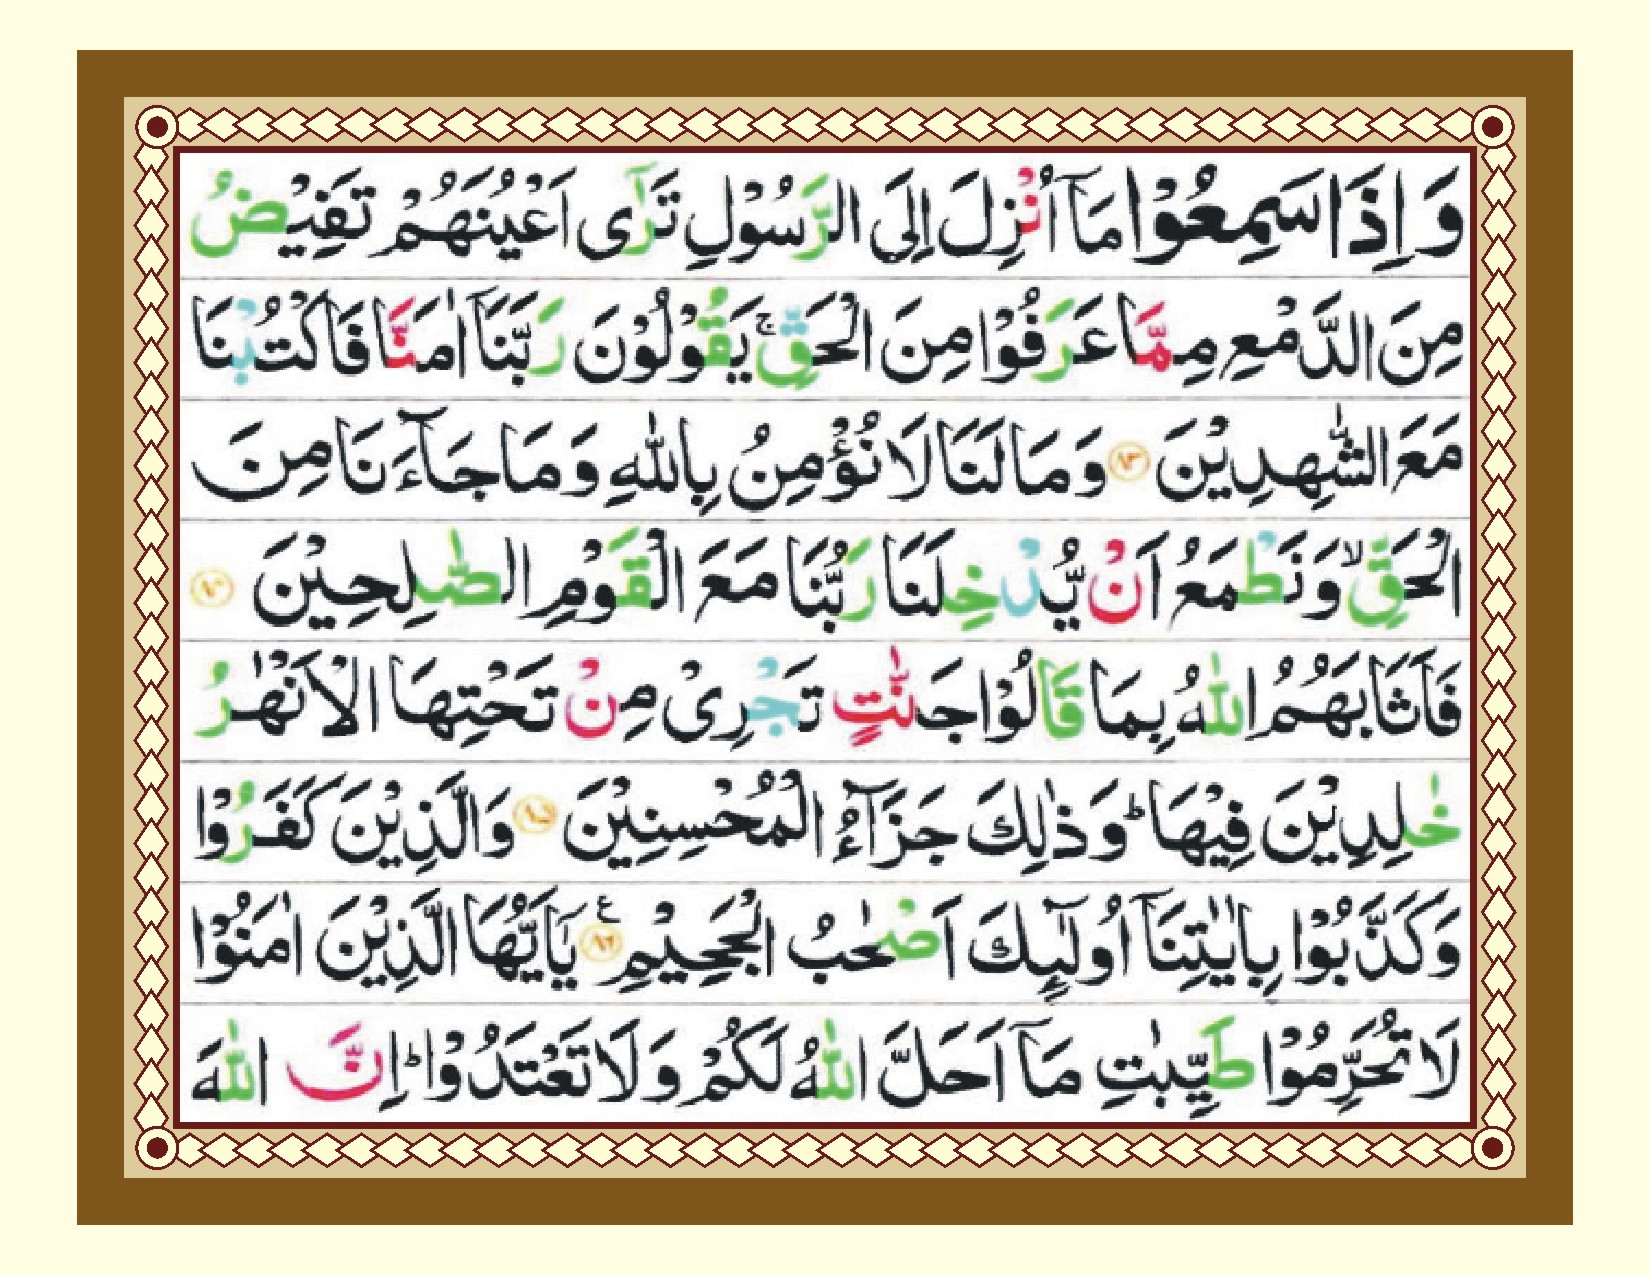 وَ اِذَا سَمِعُوْا مَاۤ اُنْزِلَ اِلَى الرَّسُوْلِ تَرٰۤى اَعْيُنَهُمْ تَفِيْضُ
مِنَ الدَّمْعِ مِمَّا عَرَفُوْا مِنَ الْحَقِّ ۚ يَقُوْلُوْنَ رَبَّنَاۤ اٰمَنَّا فَاكْتُبْنَا
مَعَ الشّٰهِدِيْنَ ۝۸۳ وَ مَا لَنَا لَا نُؤْمِنُ بِاللّٰهِ وَ مَا جَآءَنَا مِنَ
الْحَقِّ ۙ وَ نَطْمَعُ اَنْ يُّدْخِلَنَا رَبُّنَا مَعَ الْقَوْمِ الصّٰلِحِيْنَ
فَاَثَابَهُمُ اللّٰهُ بِمَا قَالُوْا جَنّٰتٍ تَجْرِيْ مِنْ تَحْتِهَا الْاَنْهٰرُ
خٰلِدِيْنَ فِيْهَا ؕ وَ ذٰلِكَ جَزَآءُ الْمُحْسِنِيْنَ وَ الَّذِيْنَ كَفَرُوْا
وَ كَذَّبُوْا بِاٰيٰتِنَاۤ اُولٰٓىِٕكَ اَصْحٰبُ الْجَحِيْمِ ۝۸۶ ع يٰۤاَيُّهَا الَّذِيْنَ اٰمَنُوْا
لَا تُحَرِّمُوْا طَيِّبٰتِ مَاۤ اَحَلَّ اللّٰهُ لَكُمْ وَ لَا تَعْتَدُوْا ؕ اِنَّ اللّٰهَ